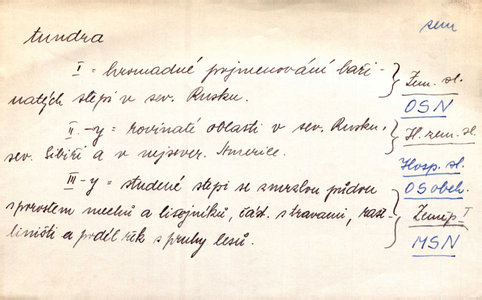 sem
tundra
I = hromadné pojmenování baži-
natých stepí v sev. Rusku.
Zem. sl.
OSN
II -y = rovinaté oblasti v sev. Rusku,
sev. Sibiři a v nejsever. Americe.
Sl. zem. sl.
Hosp. sl.
III -y = studené stepi se zmrzlou půdou
s porostem mechů a lišejníků, část. s travami, raš-
liništi a podél řek s pruhy lesů.
OSobch.
Zeměp. I
MSN